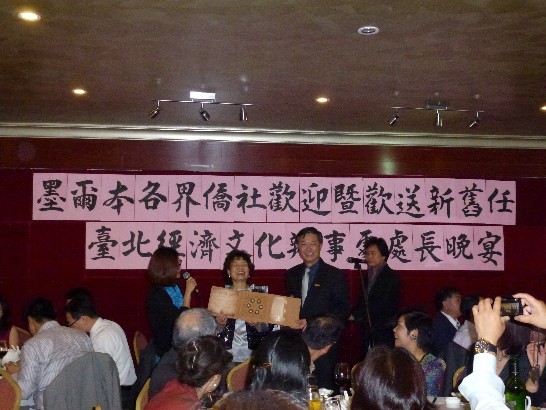 墨爾本各界僑社歡迎暨歡送新舊任
臺北經濟文化辦事處處長晚宴